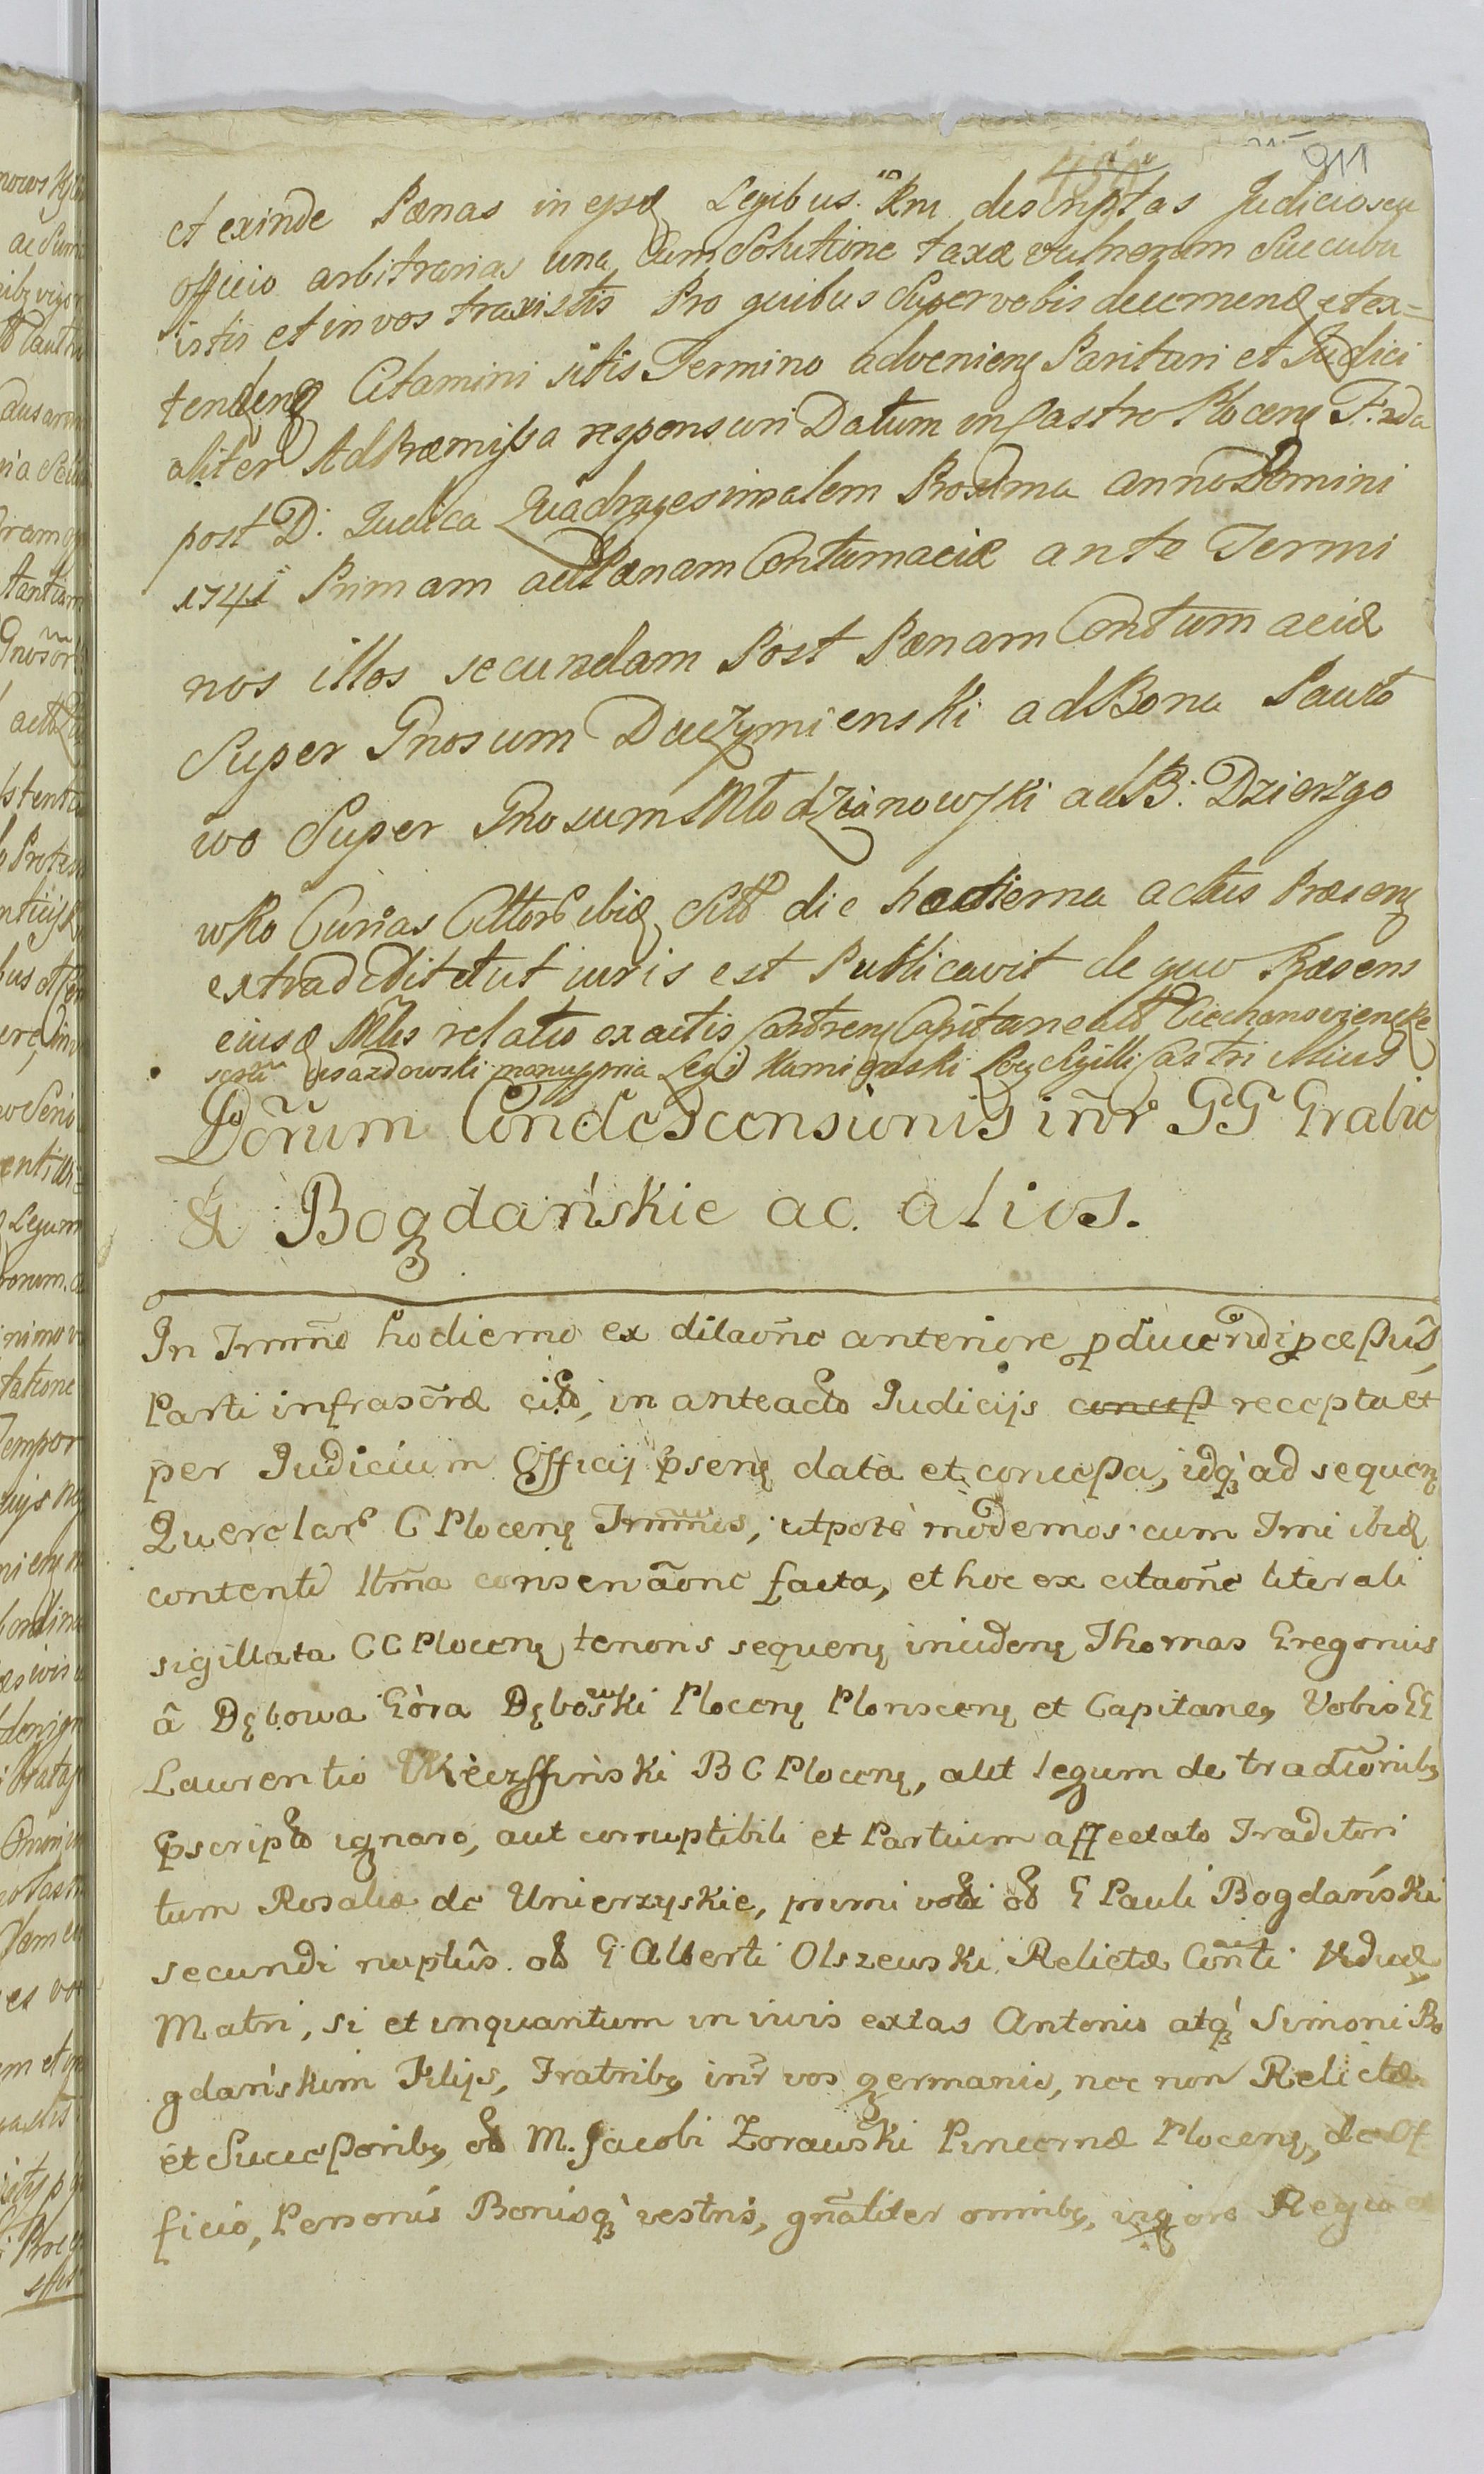 911
et exinde Pænas in eisdę Legibus Rni descriptas Judicioseu
officio arbitrarias una Cum Solutione taxæ vulnerum Succubu
istis et in vos traxistis Pro quibus Super vobis decernenđ et ex=
tendenđ Citamini sitis Termino advenienę Parituri et Judici
aliter Ad Præmissa responsuri Datum in Castro Plocenę F: 2da
post D: Judica Quadragesimalem Proxima anno Domini
1741 Primam ad Pænam Contumaciæ ante Termi
nos illos secundam Post Pænam Contumaciæ
Super Gnosum Duczymienski ad Bona Pauło
wo Super Gnosum Młodzianowski ad B: Dzierzgo
wko Curias ibiđ die hodierna actus Præsenę
extradidit et ut iuris est Publicavit de quo Præsens
eiusđ relatio ex actis Castrenę Capitanealib Ciechanoviensibę
manuppria Legi Kamienski Castri illius
Dõrum Condescensionis iñr GG Grabie
& Bogdańskie ac alios.
In Trmño hodierno ex dilaõne anteriore
Parti infrascrõæ citõ, in anteacto Judicijs receptu et
per Judicium Officij pñsenę data et concessa, idq̀ ad sequenę
Querelarę C Plocenę Trminos, utpotè modernos cum Trni ibiđ
contenti ltma facta, et hoc ex citaõne literali
sigillata CC Plocenę tenoris sequenę incidenę Thomas Gregorius
â Dębowa Góra Dębowski Plocenę Plonscenę et Capitaneę Vobis GG
Laurentio B C Plocenę, alit legum de tradiõnibę
pscripto ignaro, aut corruptibili et Partium affectato Traditori
tum Rosaliæ de Unierzyskie, primi voti olõ G Pauli Bogdański
secundi nuptijs olõ G Alberti Olszewski Relictæ Viduæ
Matri, si et inquantum in vivis extas Antonio atq̀ Simoni Bo
gdańskim Filijs, Fratribę inr vos germanis, nec non Relictæ
et Successoribę olõ M. Jacobi Zorawski Pincernæ Plocenę, de Of
ficio, Personis Bonisq̀ vestris, gñaliter omnibę, vigore Regia